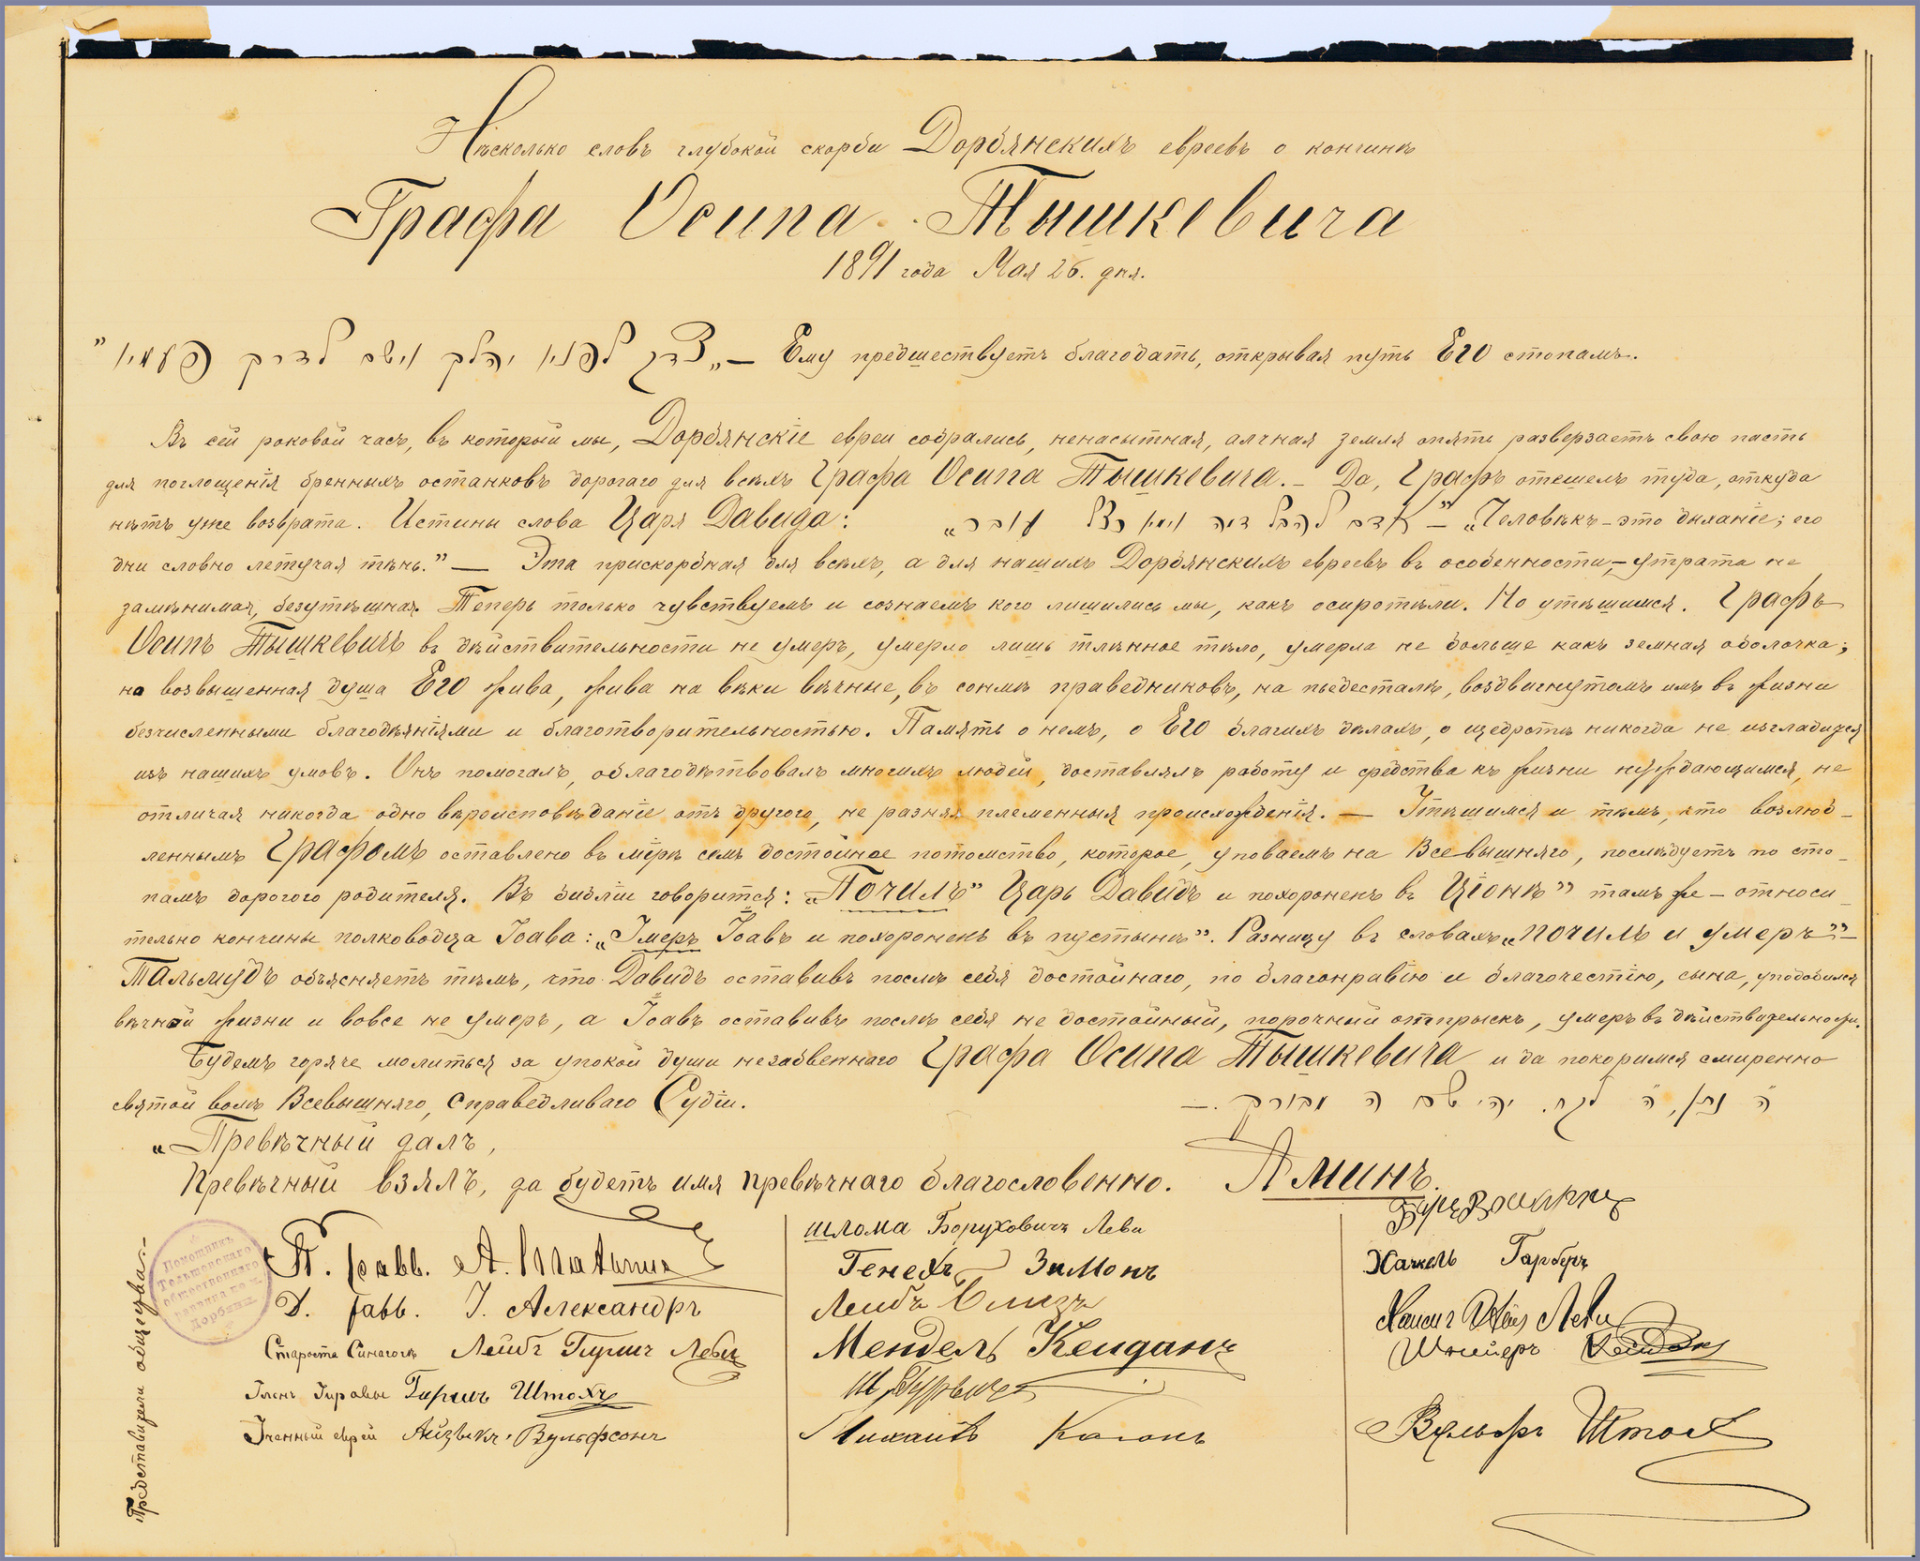 Нѣсколько словъ глубокой скорби Дорбянскихъ евреевъ о кончинѣ
Графа Осипа Тышкевича
1891 года Мая 26. дня.
„צדק לפניו יהלך וישם לדרך פעמיו” — Ему предшествуетъ благодать, открывая путь Его стопамъ.
Въ сей роковой часъ, въ который мы, Дорбянскіе евреи собрались, ненасытная, алчная земля опять разверзаетъ свою пасть
для поглощенія бренныхъ останковъ дорогаго для всѣхъ Графа Осипа Тышкевича. — Да, Графъ отошелъ туда, откуда
нѣтъ уже возврата. Истины слова Царя Давида: „אדם להבל דמה ימיו כצל עובר” — „Человѣкъ — это дыханіе; его
дни словно летучая тѣнь.” — Эта прискорбная для всѣхъ, а для нашихъ Дорбянскихъ евреевъ въ особенности, — утрата не
замѣнимая, безутѣшная. Теперь только чувствуемъ и сознаемъ кого лишились мы, какъ осиротѣли. Но утѣшимся. Графъ
Осипъ Тышкевичъ въ дѣйствительности не умеръ, умерло лишь тлѣнное тѣло, умерла не больше какъ земная оболочка;
но возвышенная душа Его жива, жива на вѣки вѣчные, въ сонмѣ праведниковъ, на пьедесталѣ, воздвигнутомъ имъ въ жизни
безчисленными благодѣяніями и благотворительностью. Память о немъ, о Его благихъ дѣлахъ, о щедротѣ никогда не изгладится
изъ нашихъ умовъ. Онъ помогалъ, облагодѣтвовалъ многихъ людей, доставлялъ работу и средства къ жизни нуждающимся, не
отличая никогда одно вѣроисповѣданіе отъ другого, не разняя племенныя происхожденія. — Утѣшимся и тѣмъ, что возлюб-
леннымъ Графомъ оставлено въ мірѣ семъ достойное потомство, которое, уповаемъ на Всевышняго, послѣдуетъ по сто-
памъ дорогого родителя. Въ библіи говорится: „Почилъ” Царь Давидъ и похороненъ въ Ціонѣ” тамъ же — относи-
тельно кончины полководца Іоава: „Умеръ Іоавъ и похороненъ въ пустынѣ”. Разницу въ словахъ „почилъ и умеръ” —
Талмудъ объясняетъ тѣмъ, что Давидъ оставивъ послѣ себя достойнаго, по благонравію и благочестію, сына, уподобился
вѣчной жизни и вовсе не умеръ, а Іоавъ оставивъ послѣ себя не достойный, порочный отпрыскъ, умеръ въ дѣйствительности.
Будемъ горяче молиться за упокой души незабвеннаго Графа Осипа Тышкевича и да покоримся смиренно
святой волѣ Всевышняго, справедливаго Судіи. ה' נתן, ה' לקח. יהי שם ה' מבורך. —
„Превѣчный далъ,
Превѣчный взялъ, да будетъ имя превѣчнаго благословенно. Аминь.
Представители общества:
Помощникъ Тельшевскаго общественнаго раввина въ м. Дорбянахъ
П. равв.
Д. равв. І. Александръ
Староста Синагоги Лейбъ Гиршъ Левъ
Членъ Управы Гиршъ Штохъ
Ученный еврей Айзикъ Вульфсонъ
Шлома Боруховичъ Леви
Генехъ Зимонъ
Лейбъ
Мендель Кейданъ
Ш. Гурвичъ
Михаилъ Каганъ
Хацкель Гарберъ
Леви
Шнейеръ
Вульфъ Штохъ